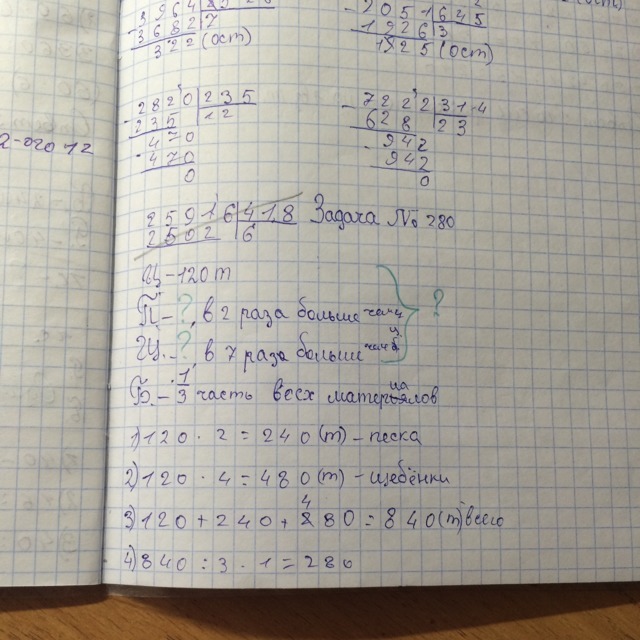 36827
322(ост)
2051645
19263
1825(ост)
2820 235
235 12
470
470
0
7222 314
628 23
942
942
0
2-ого 12
25916 418
2502 6
Задача № 280
Ц - 120 т
П. - ? в 2 раза больше чем ц
? в 7 раза больше чем
Б. - 1/3 часть всех материалов
?
1) 120 · 2 = 240 (т) - песка
2) 120 · 4 = 480 (т) - щебёнки
3) 120 + 240 + 480 = 840 (т) всего
4) 840 : 3 · 1 = 280